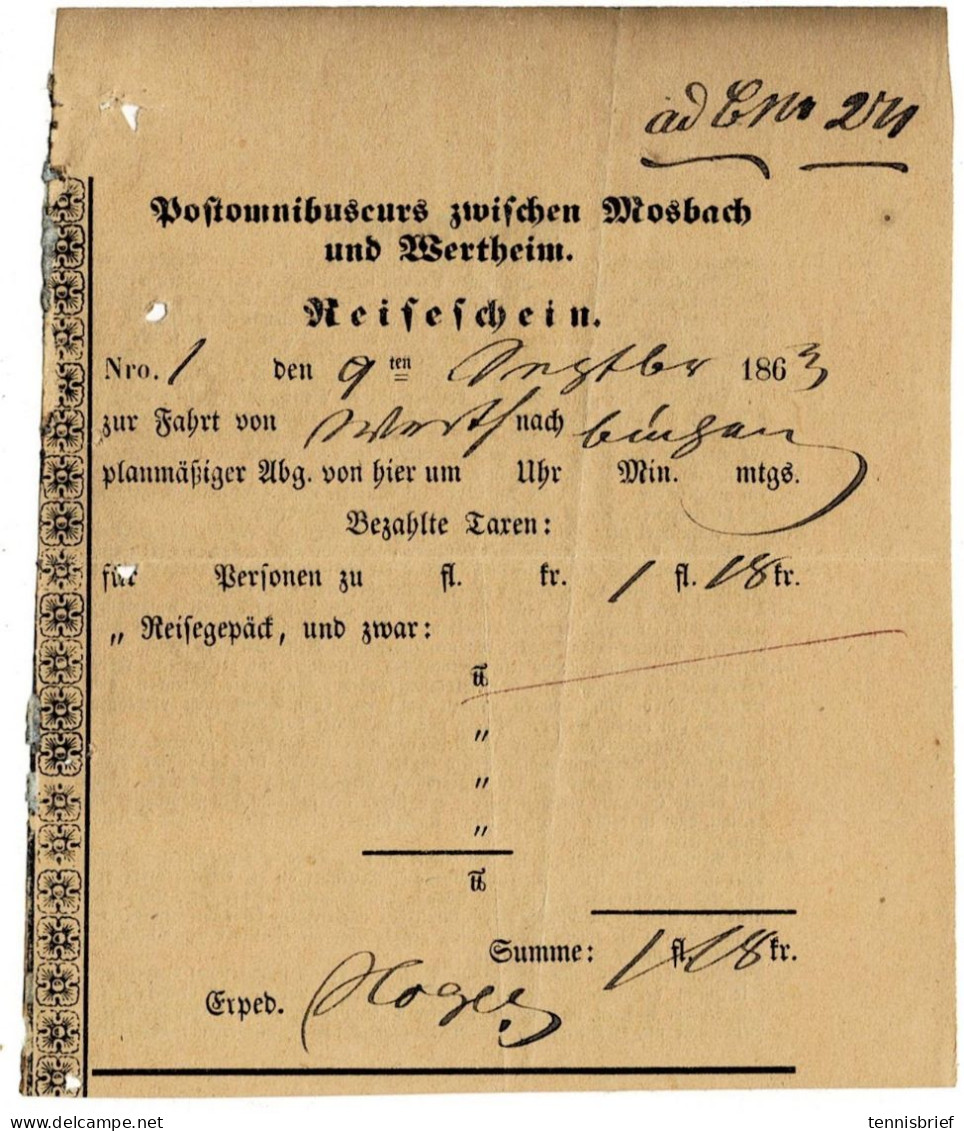 ad
Postomnibuscurs zwischen Mosbach
und Wertheim.
Reiseschein.
Nro. 1 den 9ten Septbr 1863
zur Fahrt von Werth nach
planmäßiger Abg. von hier um Uhr Min. mtgs.
Bezahlte Taxen:
für Personen zu fl. kr. 1 fl. 18 kr.
„ Reisegepäck, und zwar:
℔
„
„
„
℔
Summe: 1 fl. 18 kr.
Exped.
tennisbrief